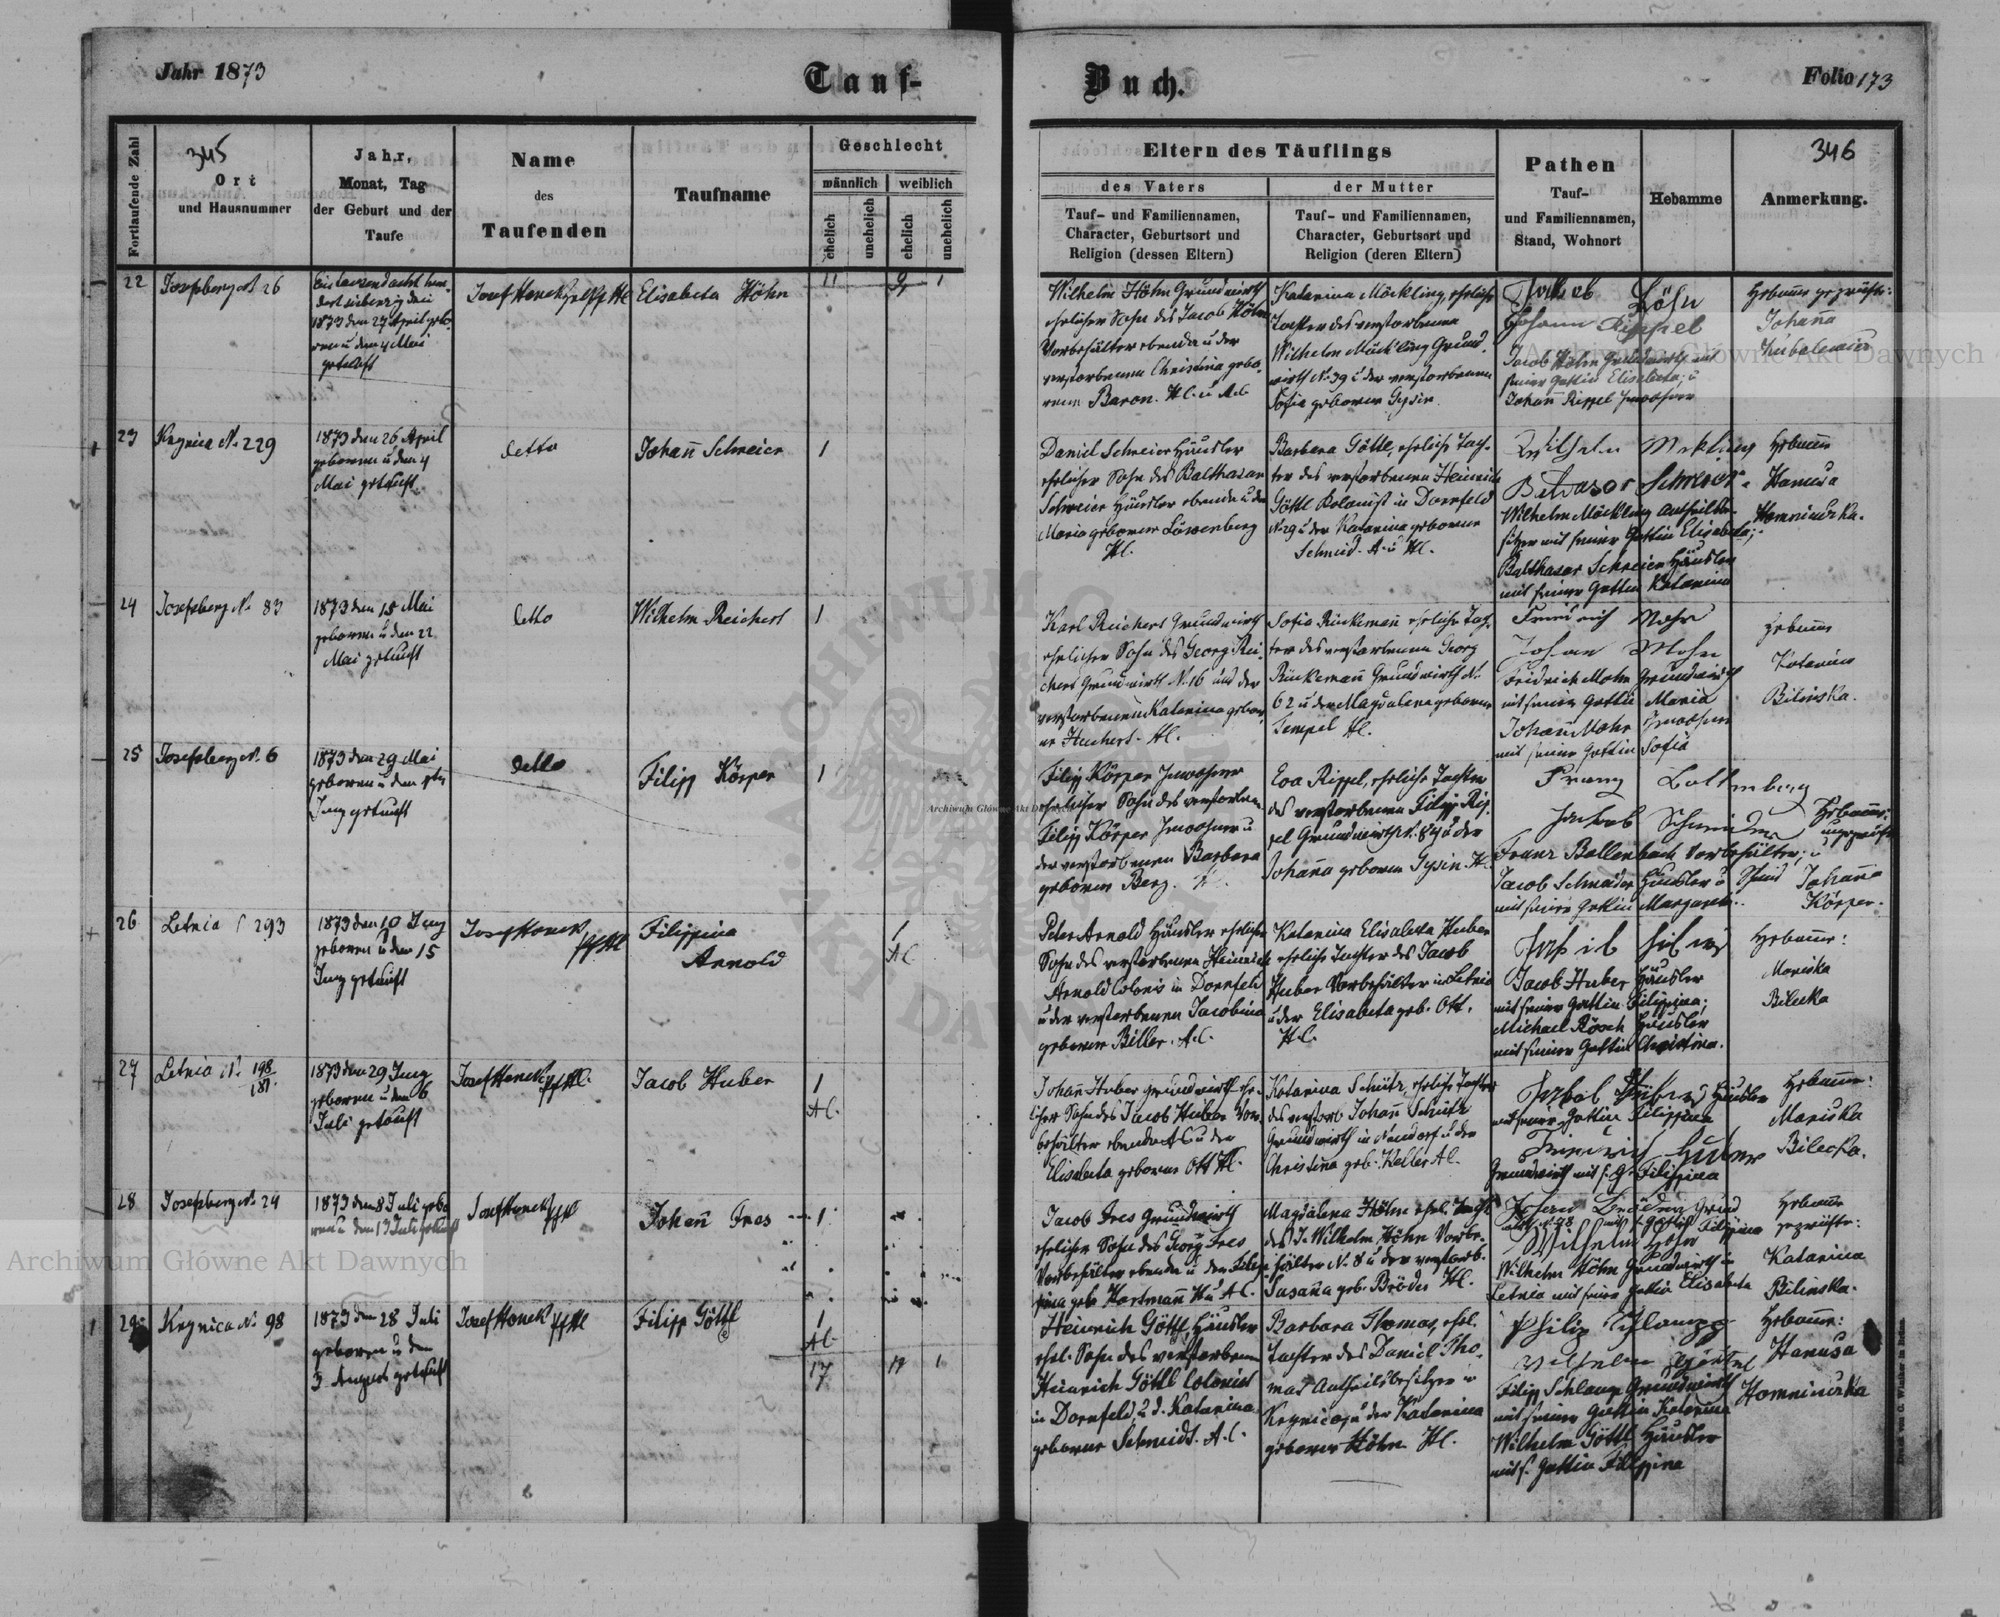 Jahr 1873
Tauf-
Buch.
Folio 173
Fortlaufende Zahl
345
Ort
und Hausnummer
Jahr,
Monat, Tag
der Geburt und der
Taufe
Name
des
Taufenden
Taufname
Geschlecht
männlich weiblich
ehelich unehelich ehelich unehelich
Eltern des Täuflings
des Vaters
der Mutter
Tauf- und Familiennamen,
Character, Geburtsort und
Religion (dessen Eltern)
Tauf- und Familiennamen,
Character, Geburtsort und
Religion (deren Eltern)
Pathen
Tauf-
und Familiennamen,
Stand, Wohnort
Hebamme
346
Anmerkung.
22 Josefsberg N. 26
1873 den 27 April gebo-
ren u den 4 Mai
getauft
Josef Honek
Elisabeta Höhn
11 9 1
Wilhelm Höhn Grundwirth
ehelicher Sohn des Jacob Höhn
Vorbehälter ebenda u der
verstorbenen Christina gebo-
renen Baron. H.C. u A.C.
Katarina Möckling, eheliche
Tochter des verstorbenen
Wilhelm Möckling Grund-
wirth N. 39 u der verstorbenen
Sofia geborene Gysin
Jakob Höhn
Johann Rippel
Jacob Höhn Grundwirth mit
seiner Gattin Elisabeta; u
Johañ Rippel Inwohner
Hebame geprüfte:
Johaña
23 Krynica N. 229
1873 den 26 April
geboren u den 4
Mai getauft
detto
Johañ Schreier
1
Daniel Schreier Häusler
ehelicher Sohn des Balthasar
Schreier Häusler ebenda u der
Maria geborene Löwenberg
H.C.
Barbara Göttl, eheliche Toch-
ter des verstorbenen Heinrich
Göttl Colonist in Dornfeld
N. 29 u der Katarina geborene
Schmid. A. u H.C.
Wilhelm Mekling
Schreier
Wilhelm Möckling Antheilbe-
sitzer mit seiner Gattin Elisabeta;
Balthasar Schreier Häusler
mit seiner Gattin Katarina
Hebame
Hanusa
Homniuzka.
24 Josefsberg N. 83
1873 den 15 Mai
geboren u den 22
Mai getauft
detto
Wilhelm Reichert
1
Karl Reichert Grundwirth
ehelicher Sohn des Georg Rei-
chert Grundwirth N. 16 und der
verstorbenen Katarina gebor-
ne Huchert. H.C.
Sofia Rückemañ eheliche Toch-
ter des verstorbenen Georg
Rückemañ Grundwirth N.
62 u der Magdalena geborene
Tempel H.C.
Friedrich Mohr
Johan Mohr
Fridrich Mohr Grundwirth
mit seiner Gattin Maria
Johañ Mohr Inwohner
mit seiner Gattin Sofia
Hebame
Katarina
Bilinska.
25 Josefsberg N. 6
1873 den 29 Mai
geboren u den
Juny getauft
detto
Filipp Körper
1
Filipp Körper Inwohner
ehelicher Sohn des verstorbenen
Filipp Körper Inwohner u
der verstorbenen Barbara
geborene Berg.
Eva Rippel, eheliche Tochter
des verstorbenen Filipp Rip-
pel Grundwirth N. 84 u der
Johaña geborene Gysin. H.C.
Franz
Jakob Schneider
Franz Bollenbach Vorbehälter; u
Jacob Schneider Häusler u Schmid
mit seiner Gattin Margareta.
Hebame:
ungeprüfte
Johaña
Körper.
26 Letnia N 293
1873 den 10 Juny
geboren u den 15
Juny getauft
Josef Honek
Filippina
Arnold
1
A.C.
Peter Arnold Häusler ehelicher
Sohn des verstorbenen Heinrich
Arnold Colonis in Dornfeld
u der verstorbenen Jacobina
geborene Biller. A.C.
Katarina Elisabeta Huber
eheliche Tochter des Jacob
Huber Vorbehälter in Letnia
u der Elisabeta geb. Ott.
H.C.
Jacob Huber Häusler
mit seiner Gattin Filippina;
Michael Rösch Häusler
mit seiner Gattin Christina.
Hebame:
Mariska
Bilecka
27 Letnia N. 198/181
1873 den 29 Juny
geboren u den 6
Juli getauft
Josef Honek
Jacob Huber
1
A.C.
Johañ Huber Grundwirth ehe-
licher Sohn des Jacob Huber Vor-
behälter ebenda A.C u der
Elisabeta geborene Ott H.C.
Katarina Schütz, eheliche Tochter
des verstorb Johañ Schütz
Grundwirth in Neudorf u der
Christina geb. Keller A.C.
Häusler
mit seiner Gattin Filippina
Friedrich Huber
Grundwirth mit s. G. Filippina
Hebame:
Mariska
Bilecka.
28 Josefsberg N. 24
1873 den 8 Juli gebo
ren u den 13 Juli getauft
Josef Honek
Johañ Fres
1
Jacob Fres Grundwirth
ehelicher Sohn des Georg Fres
Vorbehälter ebenda u der Filip-
pina geb. Hartmañ H u A.C.
Magdalena Höhn ehel. Tocht.
des J. Wilhelm Höhn Vorbe-
hälter N. 8 u der verstorb.
Susaña geb. Bröder H.C.
Johan Bröder Grund
Filippina
Wilhelm Höhn
Wilhelm Höhn Grundwirth in
Letnia mit seiner Gattin Elisabeta
Hebame
geprüfte:
Katarina
Bilinska.
29. Krynica N. 98
1873 den 28 Juli
geboren u den
3 August getauft
Josef Honek
Filipp Göttl
1
A.C.
17 11 1
Heinrich Göttl, Häusler
ehel. Sohn des verstorbenen
Heinrich Göttl Colonist
in Dornfeld, u d. Katarina
geborene Schmidt. A.C.
Barbara Thomas, ehel.
Tochter des Daniel Tho-
mas Antheilsbesitzer in
Krynica, u der Katarina
geborene Höhn H.C.
Philip Schlamp
Wilhelm Göttel
Filipp Schlamp Grundwirth
mit seiner Gattin Katarina
Wilhelm Göttl Häusler
mit s. Gattin Filippina
Hebame:
Hanusa
Homniuzka
Archiwum Główne Akt Dawnych
Archiwum Główne Akt Dawnych
Archiwum Główne Akt Dawnych